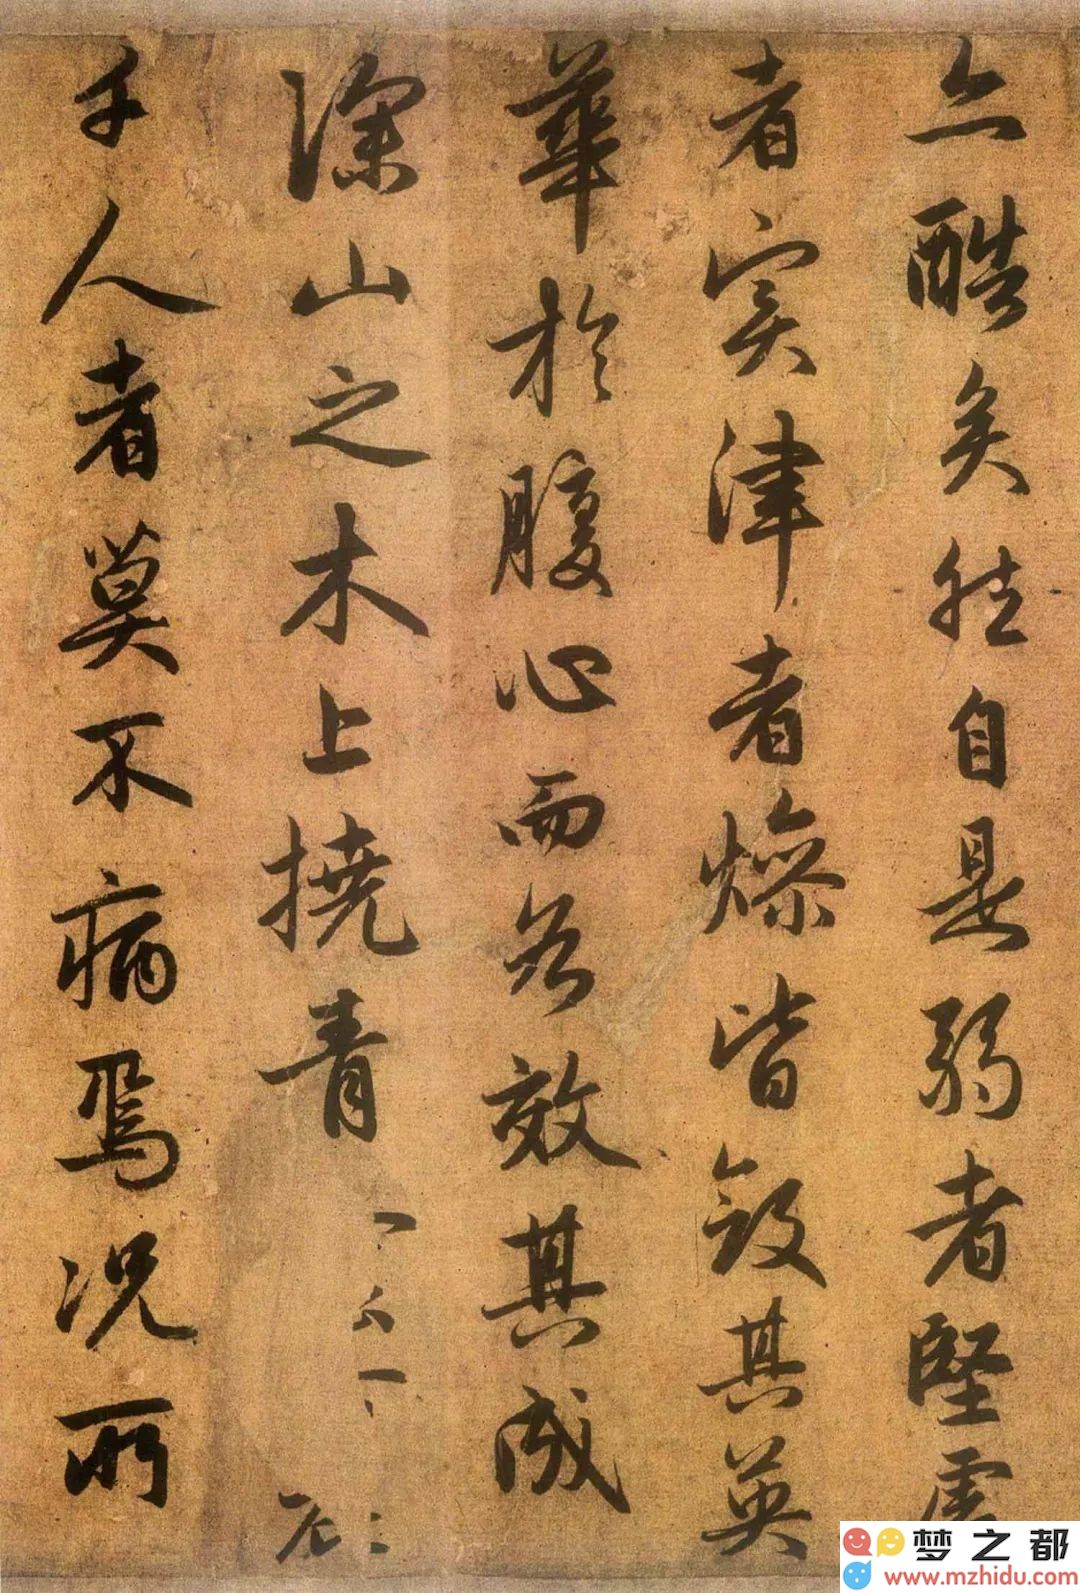 亦酷矣然自是弱者堅虛
者实津者燥皆斂其英
華於腹心而各效其成
深山之木上撓青
千人者莫不病焉况所
梦之都
www.mzhidu.com